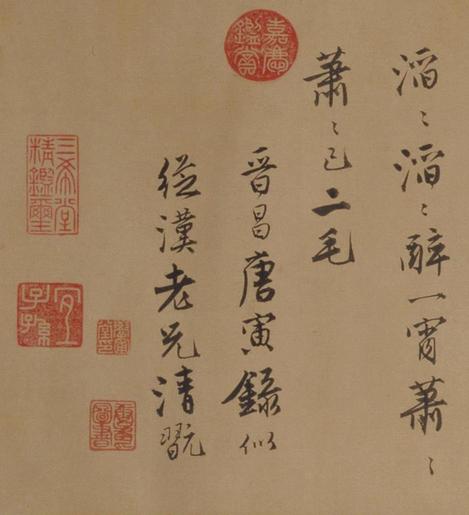 滔〻滔〻醉一宵蕭〻
蕭〻已二毛
晉昌唐寅錄似
從漢老兄清翫
嘉慶鑑賞
三希堂精鑑璽
宜子孫